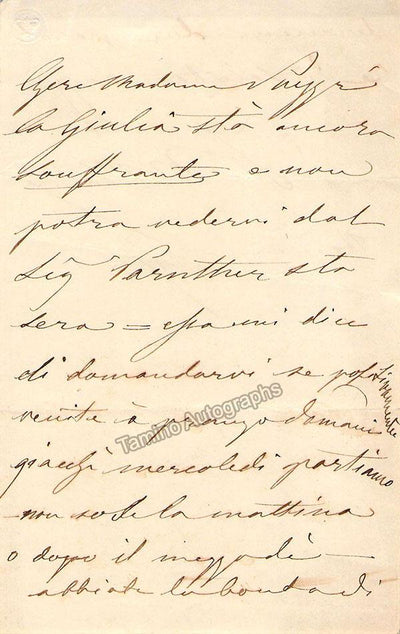 Chere Madame Puzzi
la Giulia stà ancora
souffrante e non
potra vedervi dal
Sigr Parnther sta
sera = essa mi dice
di domandarvi se
venite à pranzo domani
giacchè mercoledi partiamo
non so se la mattina
o dopo il mezzodì —
abbiate la bonta di
Tamino Autographs